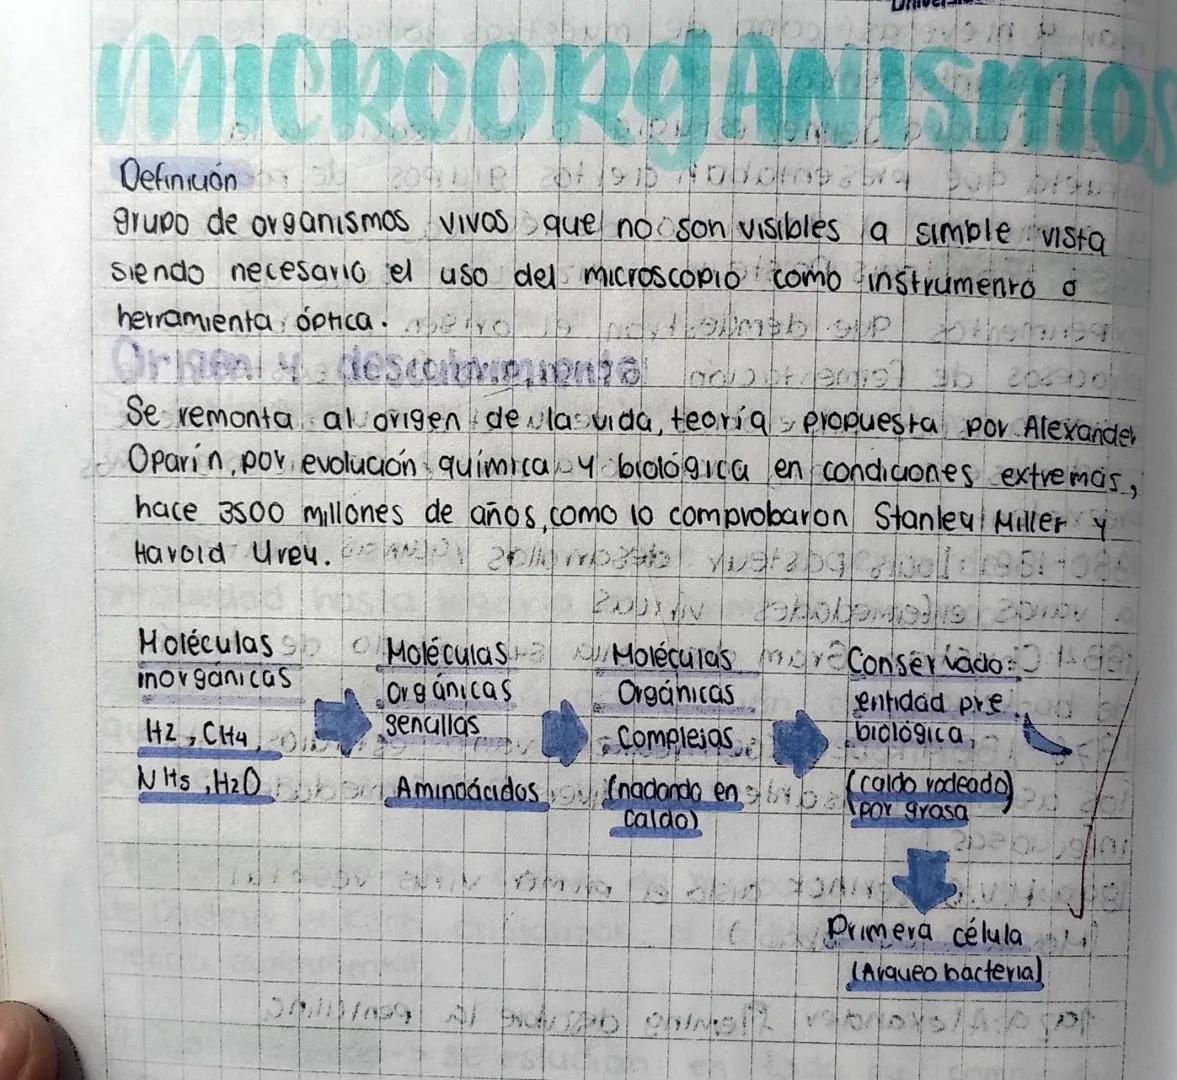 MICROORGANISMOS
Definición
grupo de organismos vivos que no son visibles a simple vista
siendo necesario el uso del microscopio como instrumento o
herramienta óptica.
Origen y descubrimiento
Se remonta al origen de la vida, teoría propuesta por Alexander
Oparin, por evolución química y biológica en condiciones extremas,
hace 3500 millones de años, como lo comprobaron Stanley Miller y
Harold Urey.
Moléculas
inorgánicas
H2, CH4,
NH3, H2O
Moléculas
orgánicas
sencillas
Aminoácidos
Moléculas
Orgánicas
Complejas
(nadando en
caldo)
Conservado:
entidad pre
biológica,
(caldo rodeado
por grasa
Primera célula
(Arqueobacteria)